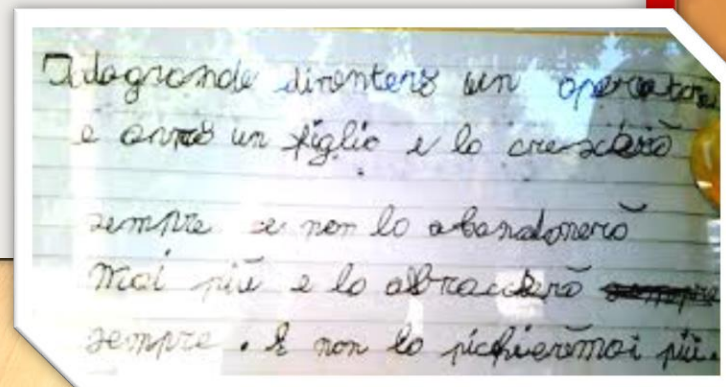 Dagrande diventerò un operatore
e avrò un figlio e lo crescierò
sempre e non lo abandonerò
mai più e lo abraccierò sempre
sempre. E non lo pichieromai più.